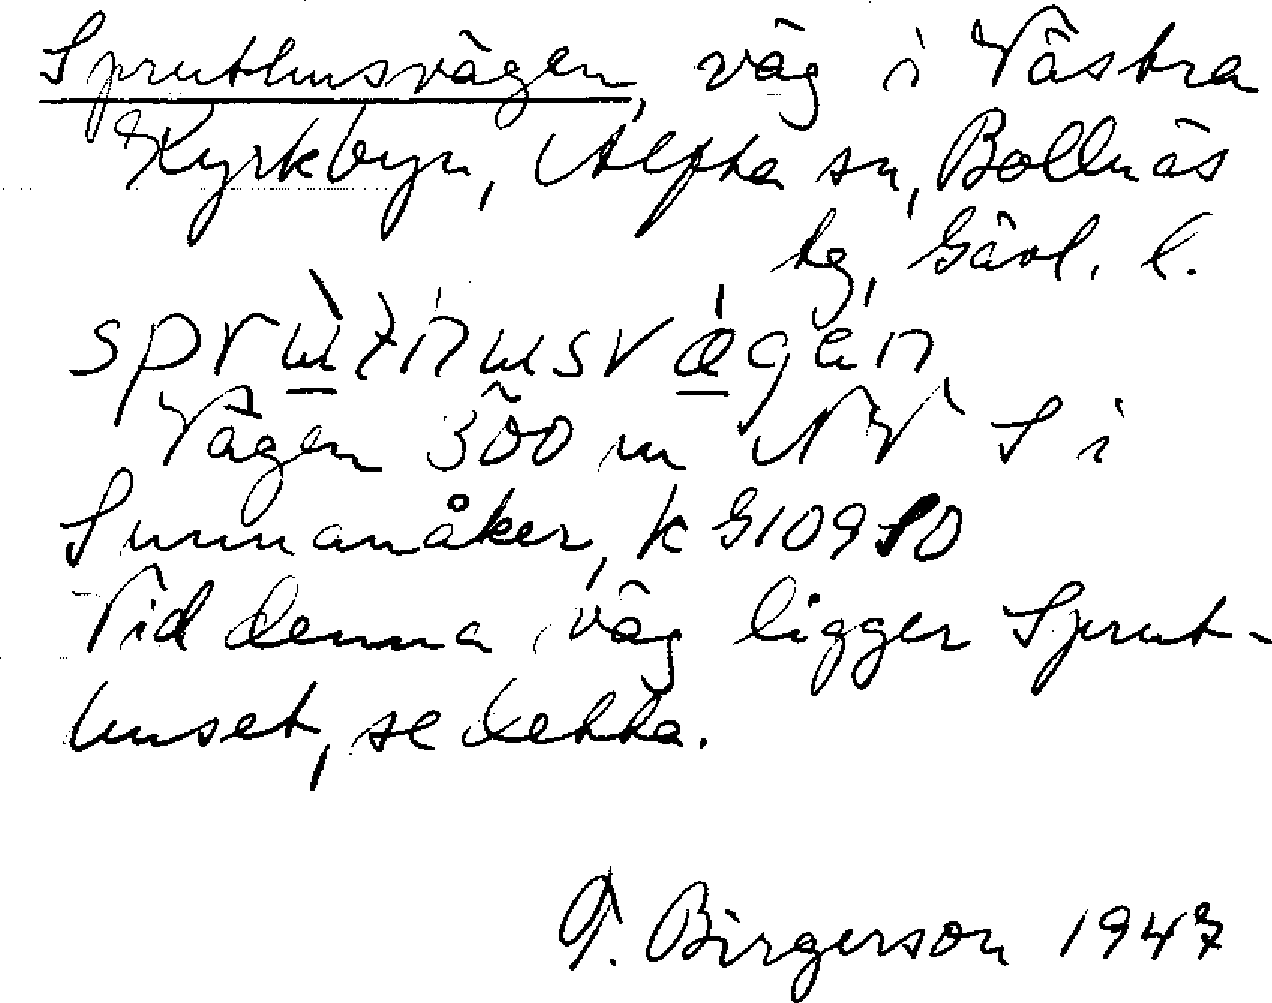 Spruthusvägen, väg i Västra
Kyrkbyn, Alfta sn, Bollnäs
tg, Gävl. l.
Vägen 300 m NV S i
Sunnanåker, k G10950
Vid denna väg ligger Sprut-
huset, se detta.
T. Birgerson 1947